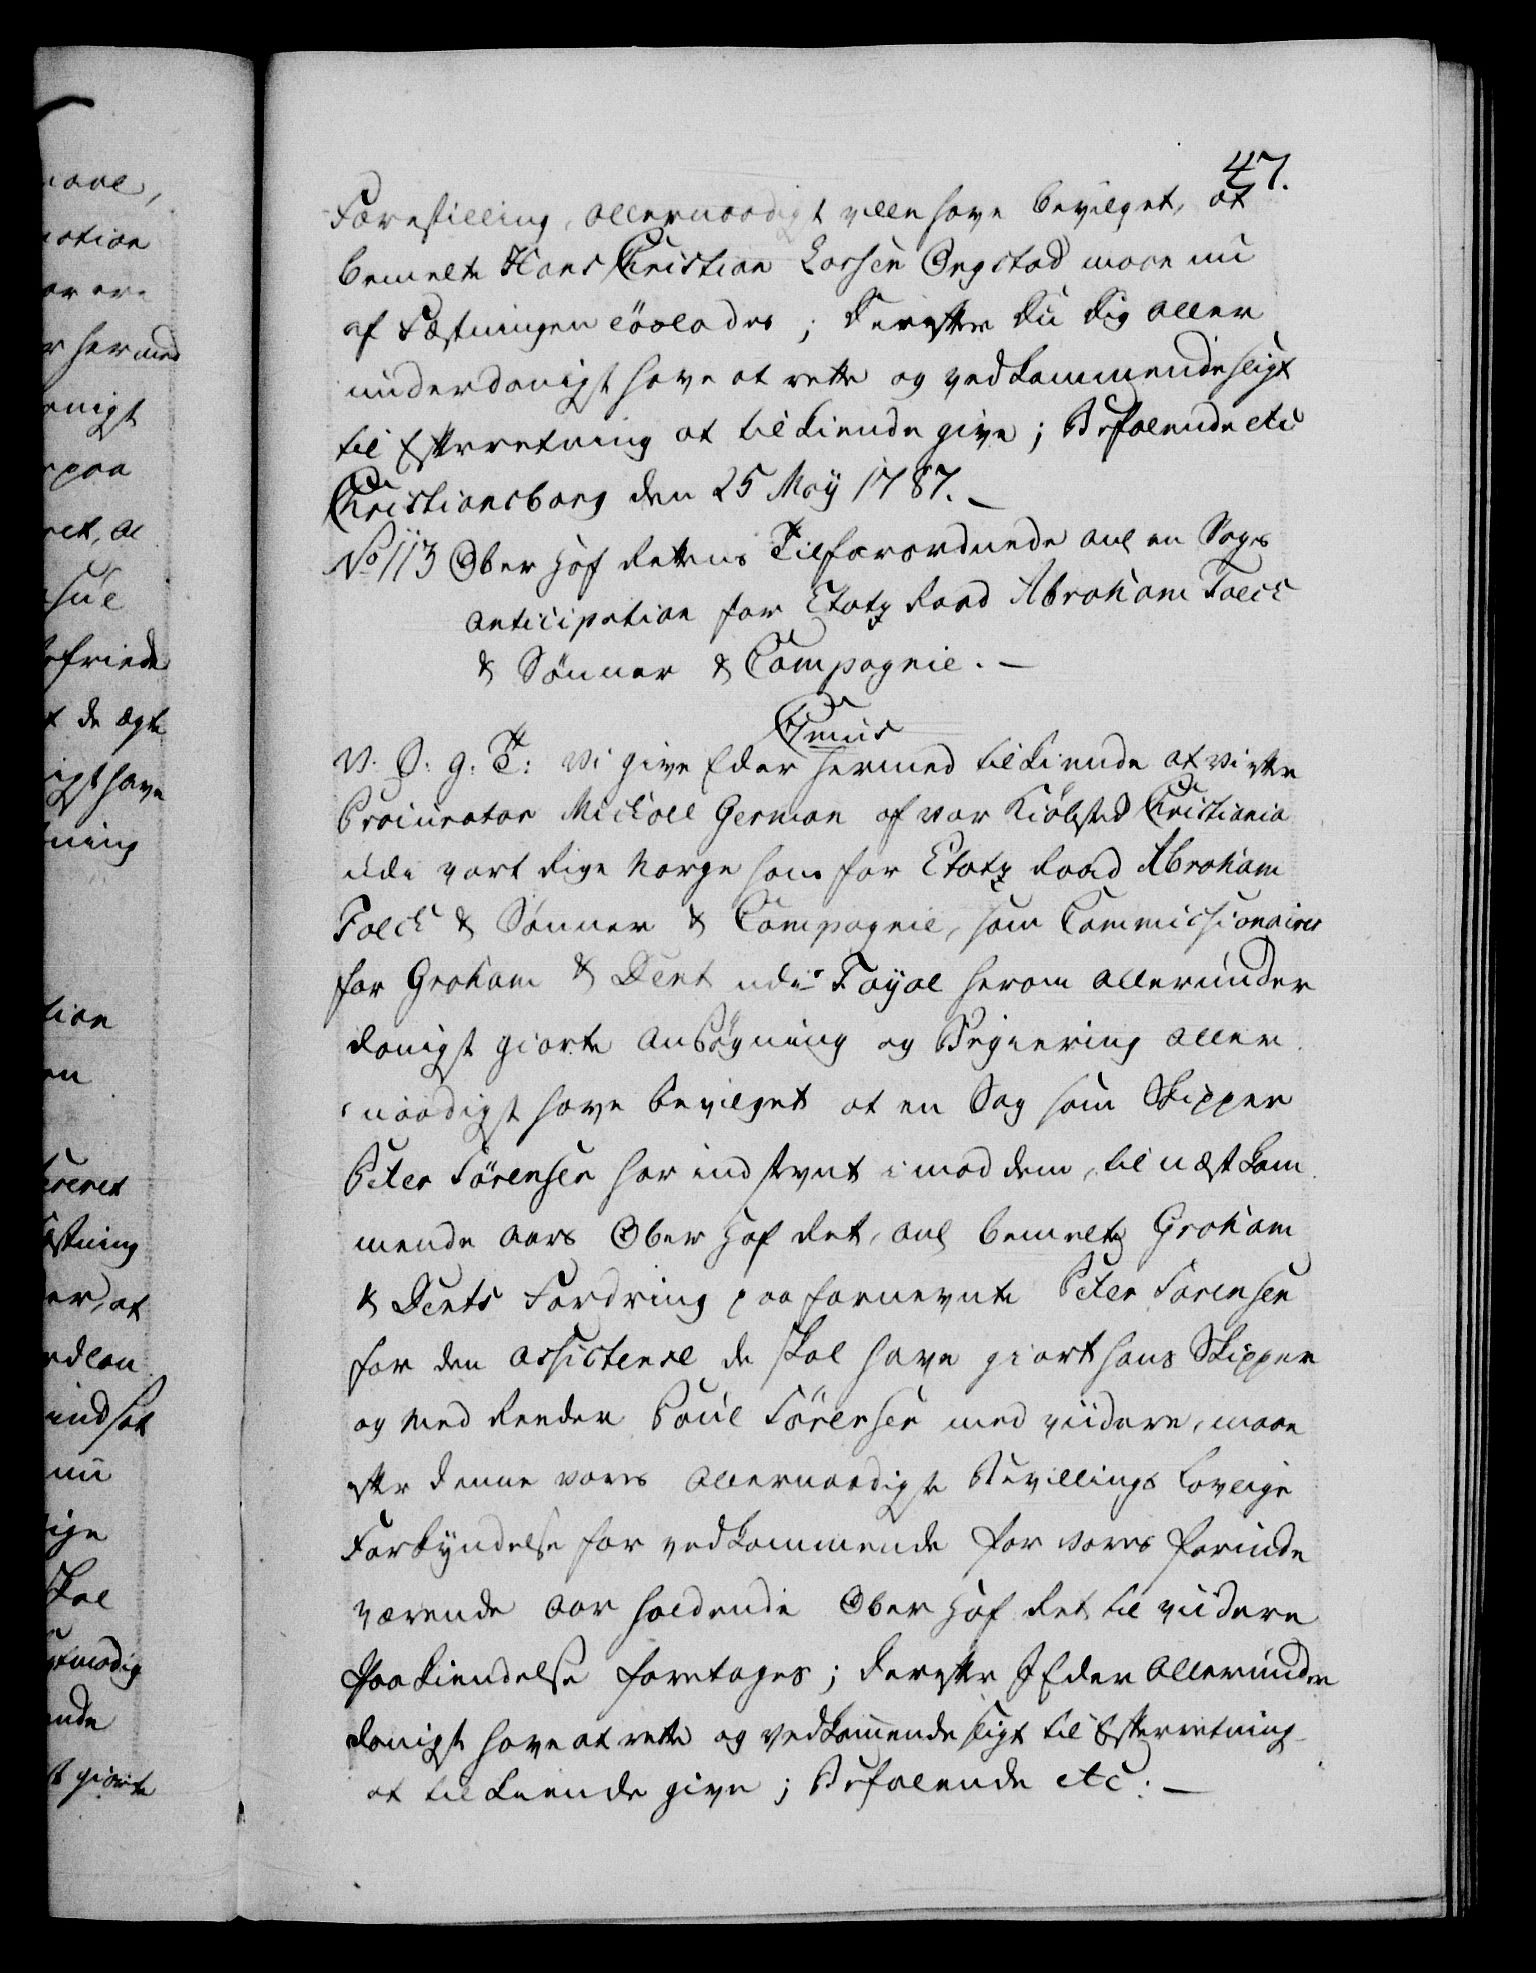 47.
Forestilling, allernaadigst ville have bevilget, at
bemelte Hans Christian Larsen Engstad maae nu
af Fæstningen løslades; Derefter Du dig aller
underdanigst have at rette og vedkommende sligt
til Efterretning at tilkiende give; Befalende etc
Christiansborg den 25 Maÿ 1787.
No 113 Ober Hof Rettens Tilforordnede anl en Sags
anticipation for Etatz Raad Abraham Falck
& Sønner & Compagnie. —
Chr. 7mus
V. S. g. T: Vi give Eder hermed tilkiende at vi efter
Procurator Michael German af vor Kiøbsted Christiania
udi vort Rige Norge hans for Etatz Raad Abraham
Falck & Sønner & Compagnie, som Commissionairer
for Graham & Dent udi Fayal herom allerunder
danigst giorte Ansøgning og Begiering aller
naadigst have bevilget at en Sag som Skipper
Peter Sørensen har indstevnt imod dem, til næstkom
mende Aars Ober Hof Ret, anl bemelte Graham
& Dents Fordring paa fornevnte Peter Sørensen
for den assistence de skal have giort hans Skipper
og Med Reeder Poul Sørensen med viidere, maae
efter denne vores allernaadigste Bevillings lovlige
Forkyndelse for vedkommende for vores herinde
værende Aar holdende Ober Hof Ret til viidere
Paakiendelse foretages; derefter I Eder allerunder
danigst have at rette og vedkommende sligt til Efterretning
at tilkiende give; Befalende etc: —